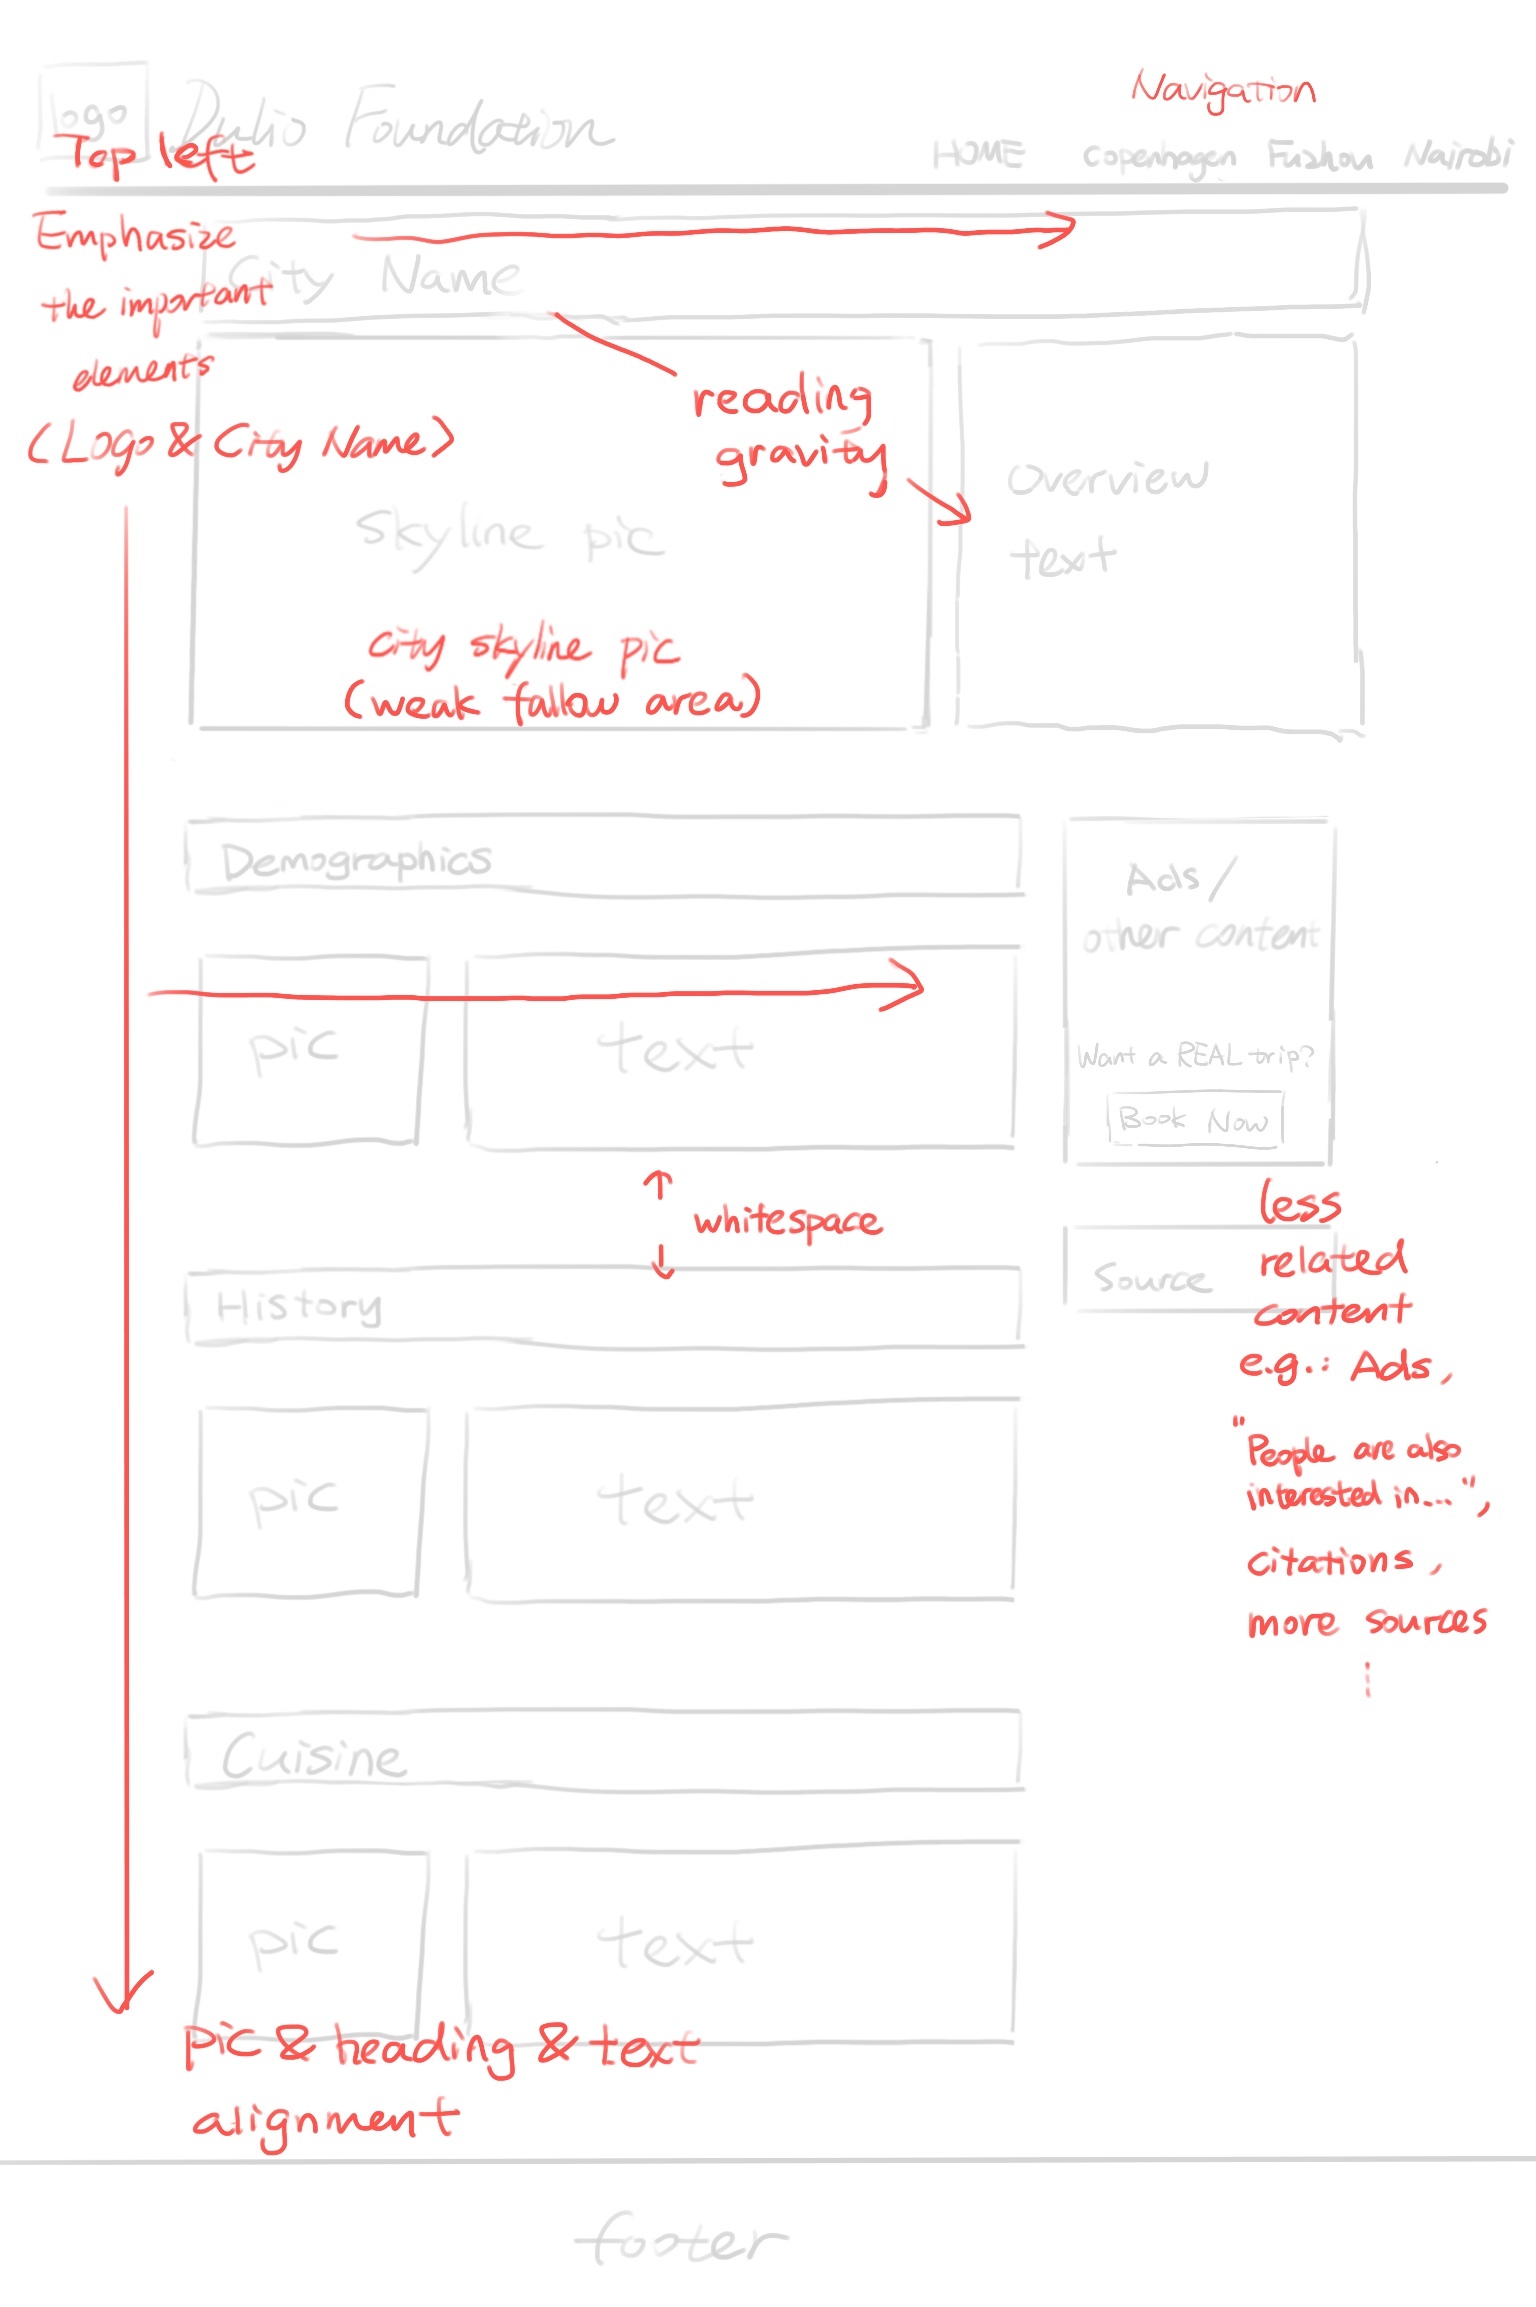 Navigation
Logo Dulio Foundation
Top left
HOME Copenhagen Fuzhou Nairobi
Emphasize
the important
elements
(Logo & City Name)
City Name
reading
gravity
Overview
text
skyline pic
city skyline pic
(weak fallow area)
Demographics
Ads/
other content
pic
text
Want a REAL trip?
Book Now
whitespace
less
related
content
e.g.: Ads,
"People are also
interested in...",
citations,
more sources
Source
History
pic
text
Cuisine
pic
text
pic & heading & text
alignment
footer